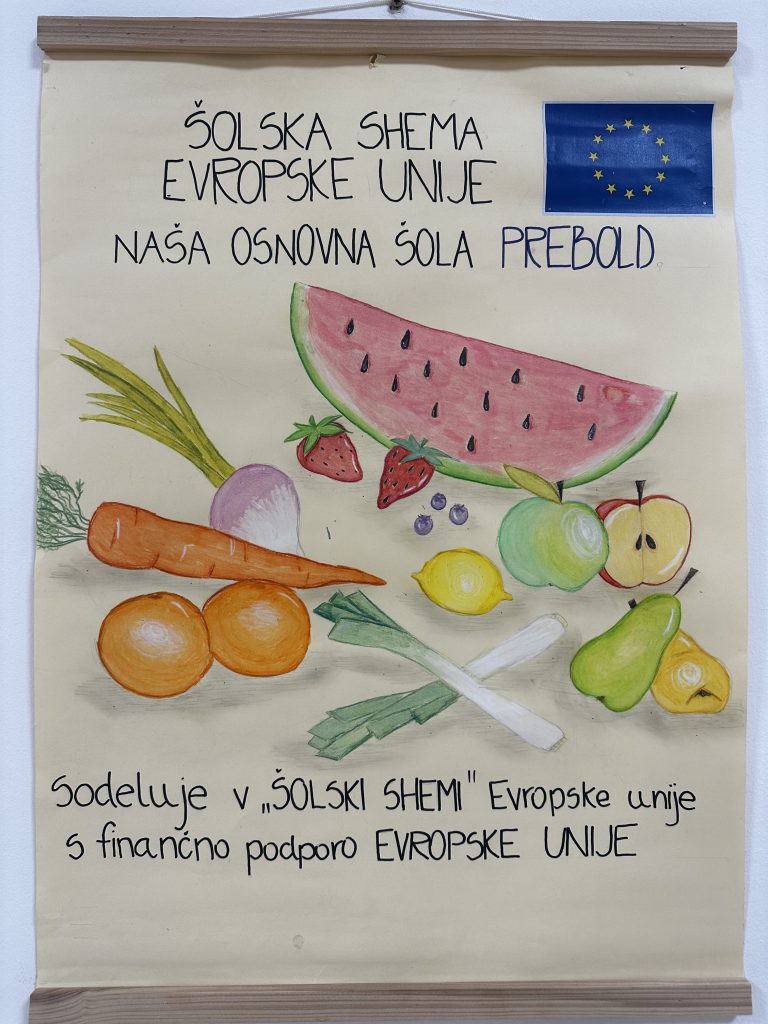 ŠOLSKA SHEMA
EVROPSKE UNIJE
NAŠA OSNOVNA ŠOLA PREBOLD
Sodeluje v „ŠOLSKI SHEMI" Evropske unije
s finančno podporo EVROPSKE UNIJE